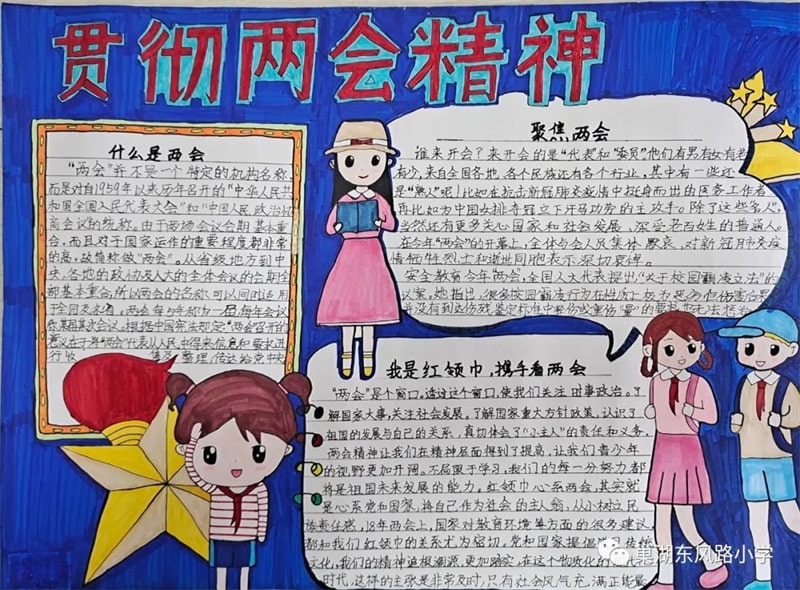 贯彻两会精神
什么是两会
"两会"并不是一个特定的机构名称,
而是对自1959年以来历年召开的"中华人民共
和国全国人民代表大会"和"中国人民政治协
商会议的统称。由于两场会议会期基本重
合,而且对于国家运作的重要程度都非常
的高,故简称做"两会"。从省级地方到中
央,各地的政协及人大的全体会议的会期全
部基本重合,所以两会的名称可以同时适用
于全国及各地。两会每
根据中国宪法规定:"两会召开的
意义在于将"两会"代表从人民中得来信息和要求进
行收 整理,传达给党中央
聚焦两会
谁来开会?来开会的是"代表"和"委员"他们有男有女有老
有少,来自全国各地,各个民族还有各个行业,其中有一些还
是"熟人"呢!比如在抗击新冠肺炎疫情中挺身而出的医务工作者
再比如为中国女排夺冠立下汗马功劳的主攻手。除了这些名人,
当然还有更多关心国家和社会发展,深受老百姓的普通人。
在今年"两会"的开幕上,全体与会人员集体默哀,对新冠月市炎疫
情牺牲烈士和逝世同胞表示深切哀悼。
安全教育今年"两会",全国人大代表提出"关于校园霸凌立法"的
议案。她指出,很多校园霸凌行为在性质上极为恶劣,但伤害后果
并没有到达伤残鉴定标准中
我是红领巾,携手看两会
"两会"是个窗口。透过这个窗口,使我们关注时事政治。了
解国家大事,关注社会发展。了解国家重大方针政策,认识了
祖国的发展与自己的关系,真切体会了"小主人"的责任和义务。
两会精神让我们在精神层面得到了提高,让我们青少年
的视野更加开阔。不局限于学习,我们的每一分努力都
将是祖国未来发展的能力。红领巾心系两会,其实就
是心系党和国家,将自己作为社会的主人翁,从小树立民
族责任感,18年两会上,国家对教育环境等方面的很多建议,
都和我们红领巾的关系尤为密切,党和国家提倡
文化,我们的精神追根溯源,更加踏实,在这个物质化的
时代,这样的主张是非常及时,只有社会风气充满正能量
巢湖东风路小学